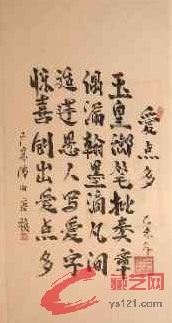 愛点多
乙未年
玉皇御筆批奏章
偶漏翰墨滴凡间
逢愚人写愛字
惊喜创出愛点多
ys121.com